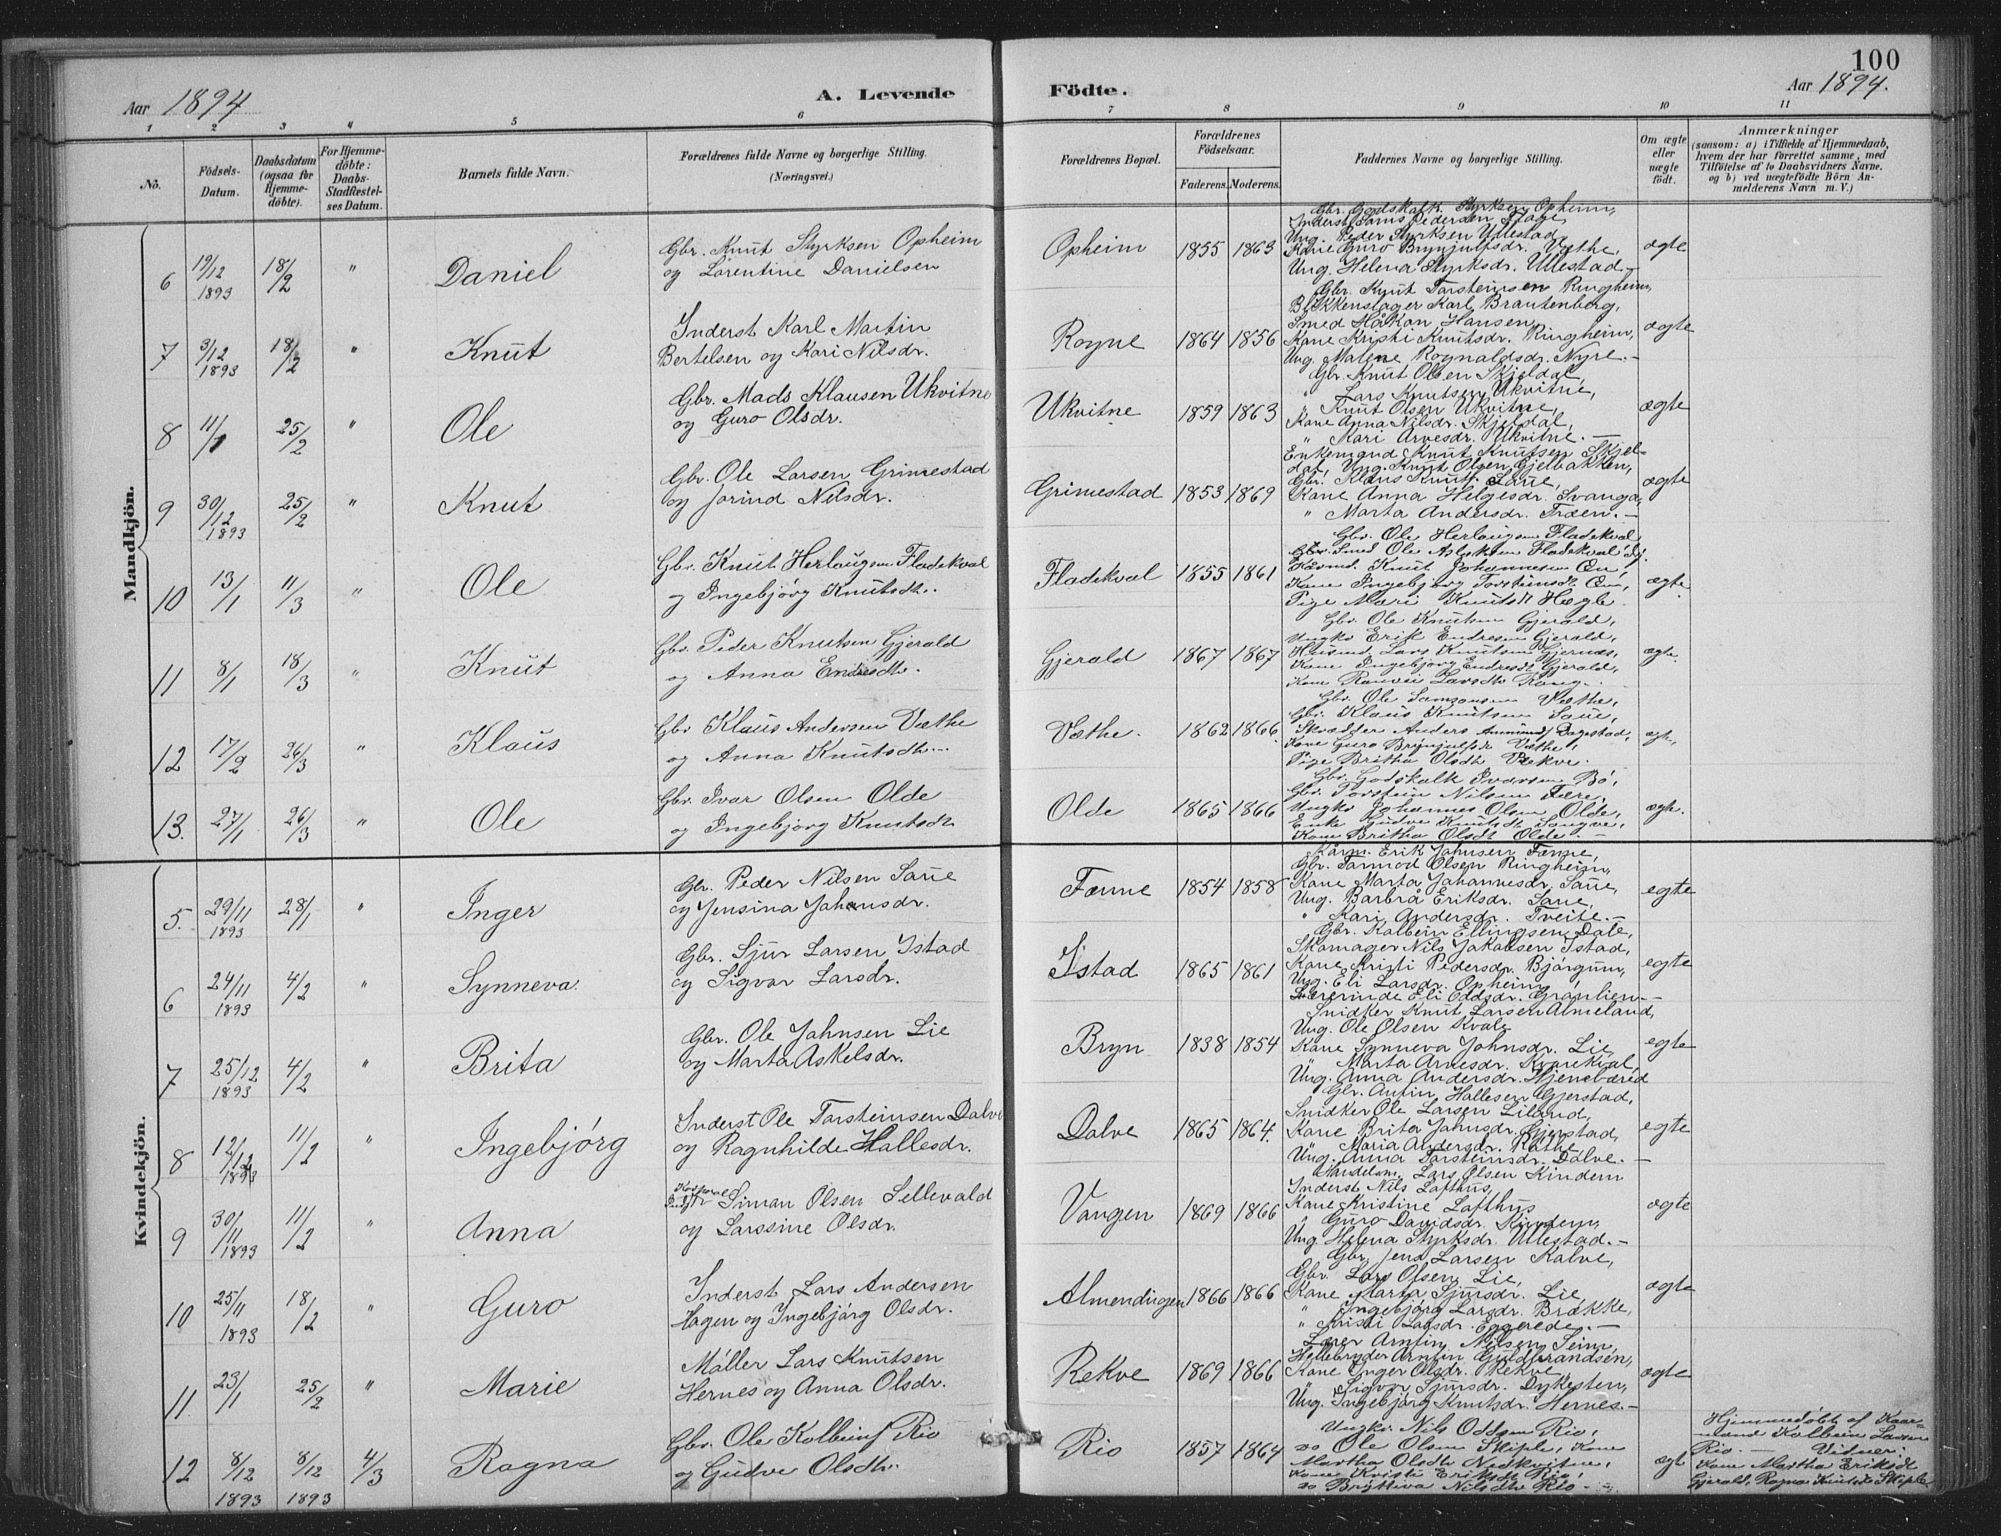 100
Aar 1894
A. Levende
Födte.
Aar 1894.
1 2 3 4 5 6 7 8 9 10 11
No.
Födsels-Datum.
Daabsdatum (ogsaa for Hjemmedöbte).
For Hjemmedöbte: Daabs-Stadfæstelses Datum.
Barnets fulde Navn.
Forældrenes fulde Navne og borgerlige Stilling.
(Næringsvei.)
Forældrenes Bopæl.
Forældrenes Födselsaar.
Faderens. Moderens.
Faddernes Navne og borgerlige Stilling.
Om ægte eller uægte födt.
Anmærkninger
(saasom: a) i Tilfælde af Hjemmedaab, hvem der har forrettet samme, med Tilföielse af to Daabsvidners Navne. og b) ved uægtefödte Börn Anmelderens Navn m. V.)
Mandkjön.
6 19/12 1893 18/2 " Daniel
Gbr. Knut Styrksen Opheim
og Lorentine Danielsen
Opheim 1855 1863
Gbr. Godskalk Styrksen Opheim,
Ung. Peder Styrksen Ullestad
Kone Guro Brynjulfsdr. Væthe,
Ung. Helena Styrksdr. Ullestad.-
ægte
7 3/12 1893 18/2 " Knut
Inderst Karl Martin
Bertelsen og Kari Nilsdr.
Rogne 1864 1856
Gbr. Knut Torsteinsen Ringheim,
Blikkenslager Karl Brautenborg,
Smed Håkon Hansen,
Kone Kristi Knutsdr. Ringheim,
Ung. Malene Rognaldsdr. Nyre.-
ægte
8 11/1 25/2 " Ole
Gbr. Mads Klausen Ukvitne
og Guro Olsdr.
Ukvitne 1859 1863
Gbr. Knut Olsen Skjeldal,
" Lars Knutsen Ukvitne,
" Knut Olsen Ukvitne,
Kone Anna Nilsdr. Skjeldal,
" Kari Arvesdr. Ukvitne.-
ægte
9 30/12 1893 25/2 " Knut
Gbr. Ole Larsen Grimestad
og Jorind Nilsdr.
Grimestad 1853 1869
Enkemand Knut Knutsen Skjeldal, Ung. Knut Olsen Gjelbakken,
Gbr. Klaus Knuts. Saue,
Kone Anna Helgesdr. Svanga,
" Marta Andersdr. Træen.-
ægte
10 13/1 11/3 " Ole
Gbr. Knut Herlaugsen Fladekval
og Ingebjörg Knutsdtr.
Fladekval 1855 1861
Gbr. Ole Herlaugsen Fladekval
Smed Ole Aslaksen Fladekval
Husmd. Knut Johannesen Øn,
Kone Ingebjörg Torsteinsdt. Øn,
Pige Mari Knutsdt Hægle.
ægte
11 8/1 18/3 " Knut
Gbr. Peder Knutsen Gjerald
og Anna Endresdtr.
Gjerald 1867 1867
Gbr. Ole Knutsen Gjerald,
Ungkr Erik Endresen Gjerald,
Husmd. Lars Knutsen Gjernæs,
Kone Ingebjörg Endresdt Gjerald,
Kone Ranvei Larsdtr Rong.
ægte
12 17/2 26/3 " Klaus
Gbr Klaus Andersen Væthe
og Anna Knutsdtr.
Væthe. 1862 1866
Gbr. Ole Samsonsen Væthe,
Gbr. Klaus Knutsen Saue,
Skrædder Anders Dagestad,
Kone Guro Brynjulfsdt Væthe,
Pige Britha Olsdtr Rekve.
ægte
13. 27/1 26/3 " Ole
Gbr. Ivar Olsen Olde
og Ingebjörg Knutsdt
Olde 1865 1866
Gbr. Godskalk Ivarsen Bö,
Gbr. Torstein Nilsen Fære,
Ungkr. Johannes Olsen Olde,
Enke Gudve Knutsdt Songve,
Kone Britha Olsdt Olde.-
ægte.
Kvindekjön.
5. 29/11 1893 28/1 " Inger
Gbr. Peder Nilsen Saue
og Jensina Johansdr.
Fenne 1854 1858
Kårm. Erik Johnsen Fenne,
Gbr. Tormod Olsen Ringheim,
Kone Marta Johannesdr. Saue,
Ung. Barbra Eriksdr. Saue,
" Kari Andersdr. Tveite.-
egte
6 24/11 1893 4/2 " Synneva.
Gbr. Sjur Larsen Istad
og Sigvor Larsdr.
Istad 1865 1861
Gbr. Kolbein Ellingsen Dale,
Skomager Nils Jakobsen Istad,
Kone Kristi Pedersdr. Bjórgum,
Ung. Eli Larsdr. Opheim,
Lærerinde Eli Oddsdr. Granlien.-
egte
7 25/12 1893 4/2 " Brita
Gbr. Ole Johnsen Lie
og Marta Askelsdr.
Bryn 1838 1854
Snidker Knut Larsen Almeland,
Ung. Ole Olsen Kvale
Kone Synneva Johnsdr. Lie
" Marta Arnesdr. Kvarekval,
Ung. Anna Andersdr.
egte
8 12/12 1893 11/2 " Ingebjórg
Inderst Ole Torsteinsen Dalve
og Ragnhilde Hallesdr.
Dalve 1865 1864.
Gbr. Antin Hallesen Gjerstad,
Snidker Ole Larsen Liland,
Kone Brita Johnsdr. Gjerstad,
" Maria Andersdr. Röthe
Ung. Anna Torsteinsdr. Dalve.-
egte
9 30/11 1893 11/2 " Anna
Simon Olsen Sellevold
og Larssine Olsdr.
Vangen 1869 1866
Handelsm. Lars Olsen Kindem
Inderst Nils Lofthus,
Kone Kristine Lofthus
" Guro Davidsdr. Kindem,
Ung. Helena Styrksdr. Ullestad.-
ægte
10 25/11 1893 18/2 " Guro
Inderst Lars Andersen
Hagen og Ingebjórg Olsdr.
Almendingen 1866 1866
Gbr. Jens Larsen Kalve,
Gbr. Lars Olsen Lie,
Kone Marta Sjursdr. Lie,
" Ingebjórg Larsdr. Brække,
" Kristi Larsdr. Eggerede.-
ægte
11 23/1 25/2 " Marie
Móller Lars Knutsen
Hernes og Anna Olsdr.
Rekve 1869 1866
Lærer Arntin Nilsen Seim,
Hellebryder Arntin Guldbrandsen,
Kone Inger Olsdr. Rekve
" Sigvor Sjursdr. Dykesten,
Ung. Ingebjórg Knutsdr. Hernes.-
ægte
12 8/12 1893 8/12 1893 4/3 Ragna
Gbr. Ole Kolbeins Rio
og Gudve Olsdtr.
Rio 1857 1864
Ungkr. Nils Oddsen Rio,
do Ole Olsen Skiple, Kone
Martha Olsdt Nedkvitne,
Kone Kristi Eriksdt Rio,
do Bryteva Nilsdtr Rio.
ægt
Hjemmedöbt af Kaarmand Kolbein Larsen
Rio. - Vidner:
Kone Martha Eriksdt
Gjerald, Ragna Knutsdt Skiple